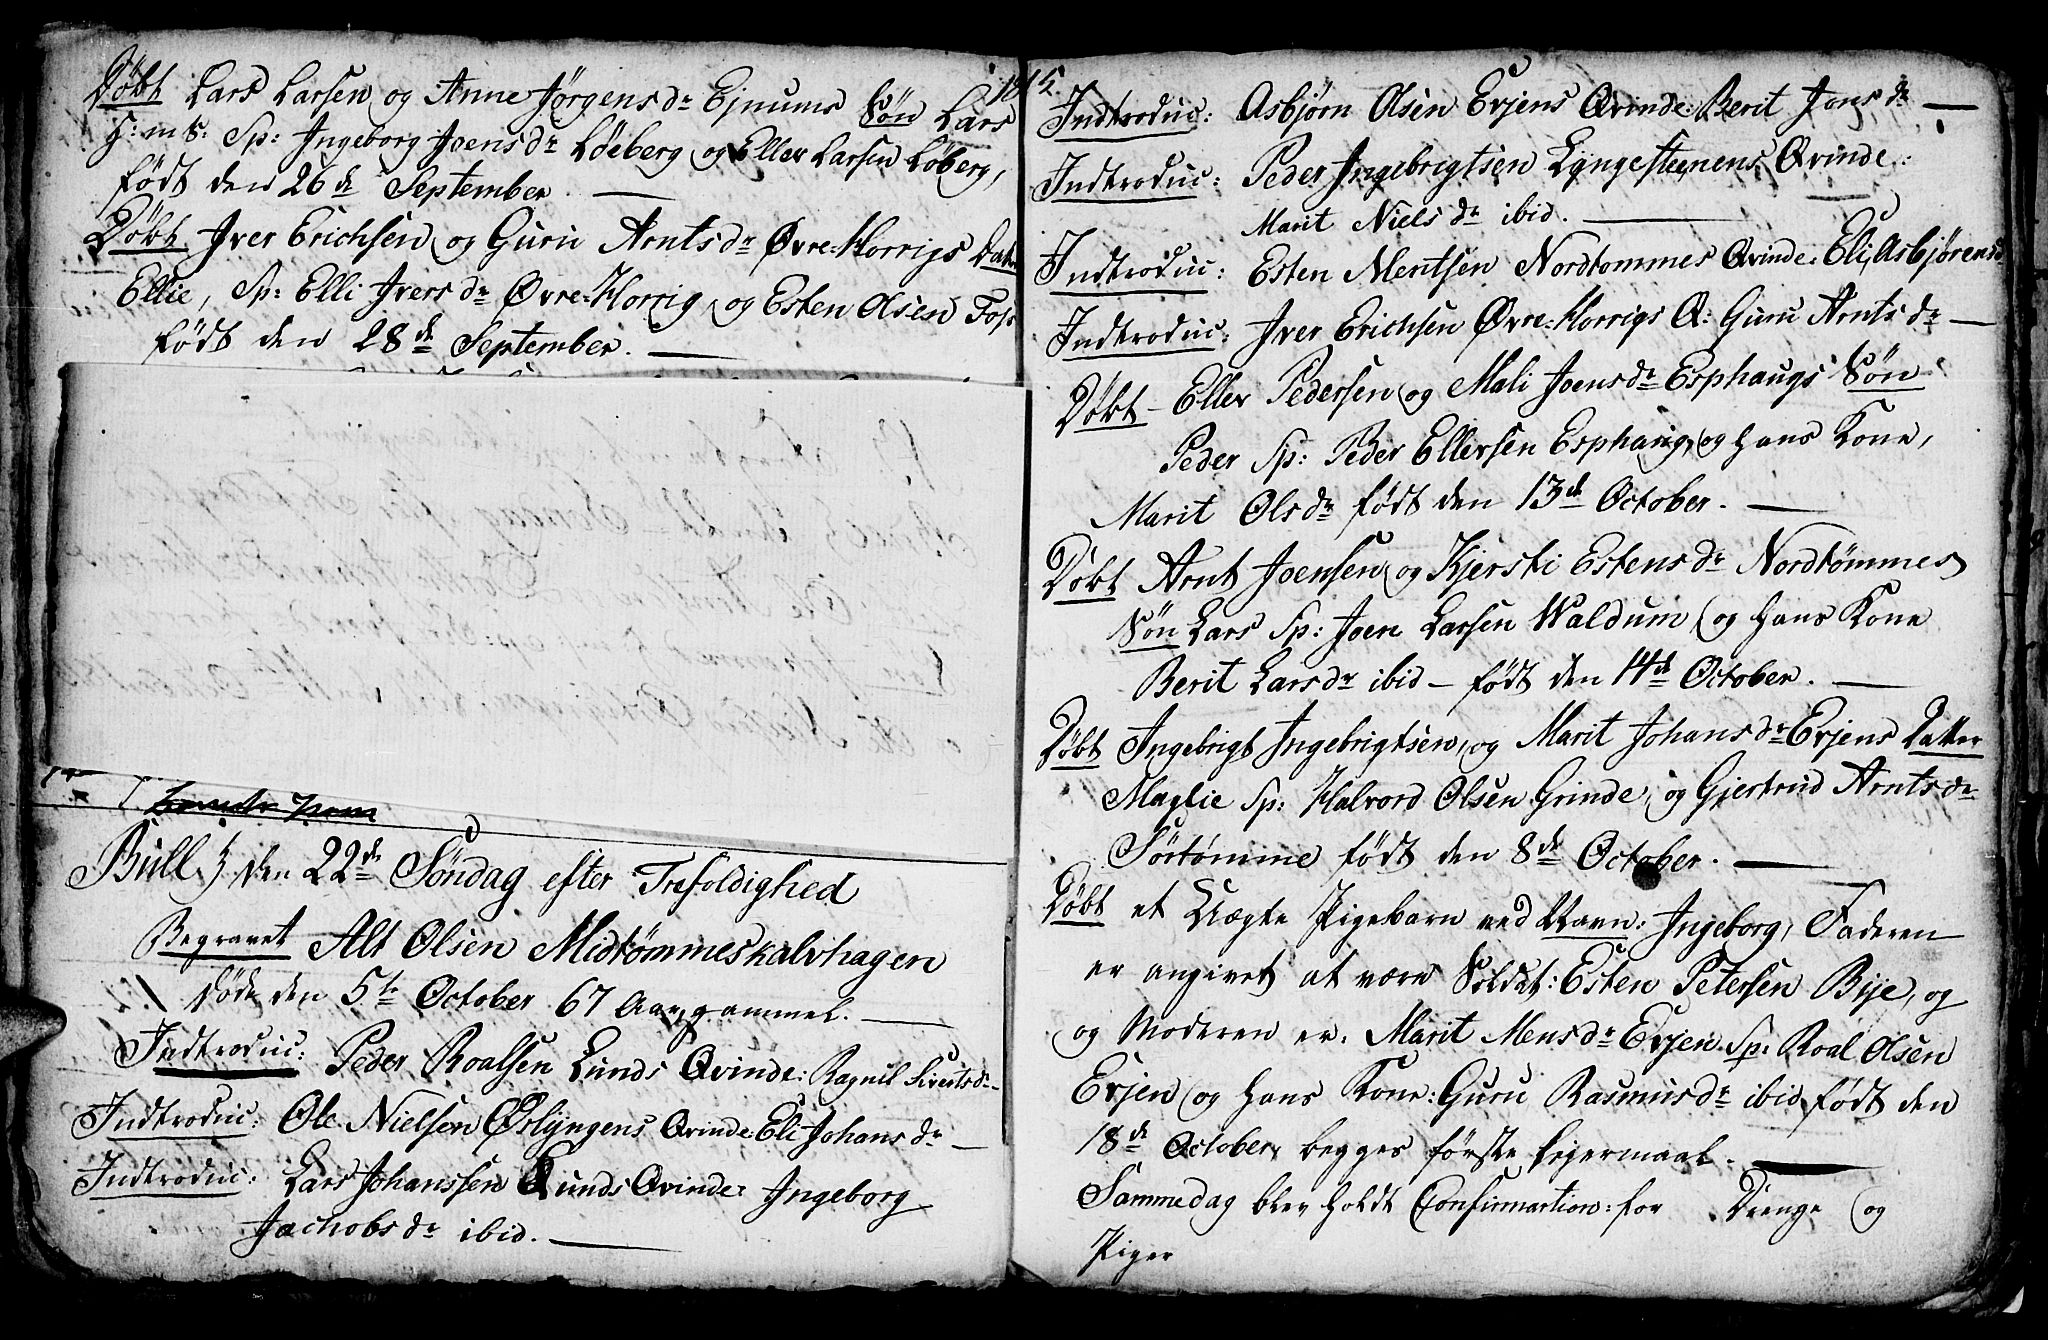 Døbt Lars Larsen og Anne Jørgensdr Ejnums Søn Lars
H: m S: Sp: Ingeborg Joensdr Löeberg og Eller Larsen Loberg,
født den 26de September.
Døbt Iver Erichsen og Guru Arntsdr Øvre-Horrigs Datter
Ellie, Sp: Elli Iversdr Øvre-Horrig og Esten Olsen Fos
født den 28de September.
Bull. } den 22de Søndag efter Trefoldighed
Begravet Alt Olsen Midtømmeskalvhagen
Døde den 5te October 67 Aar gammel.
Indtroduc: Peder Roalsen Lunds Qvinde: Ragnil Sivertsdr
Indtroduc: Ole Nielsen Øslyngens Qvinde: Eli Johansdr
Indtroduc: Lars Johanssen Lunds Qvinde: Ingeborg
Jachobsdr ibid.
Indtroduc: Asbjørn Olsen Evjens Qvinde: Berit Jonsdr
Indtroduc: Peder Ingebrigtsen Lyngesteenens Qvinde:
Marit Nielsdr ibid.
Indtroduc: Esten Mentsen Nordtommes Qvinde: Eli Asbjørensd
Indtroduc: Iver Erichsen Øvre-Horrigs Q: Guru Arntsdr
Døbt Eller Pedersen og Mali Joensdr Esphaugs Søn
Peder Sp: Peder Ellersen Esphaug, og hans Kone,
Marit Olsdr født den 13de October.
Døbt Arnt Joensen og Kjersti Estensdr Nordtømmes
Søn Lars Sp: Joen Larsen Waldum og hans Kone
Berit Larsdr ibid – født den 14de October.
Døbt Ingebrigt Ingebrigtsen, og Marit Johansdr Evjens Datter
Maglie Sp: Halvord Olsen Grinde, og Gjertrud Arntsdr
Sörtømme født den 8de October.
Døbt et Uægte Pigebarn ved Navn: Ingeborg, Faderen
er angivet at være Soldat: Esten Petersen Bye, og
og Moderen er: Marit Mensdr Evjen. Sp: Roal Olsen
Evjen og hans Kone: Guru Rasmusdr ibid, født den
18de October, begges første Lejermaal.
Sammedag blev holdt Confirmartion: for Drenge og
Piger